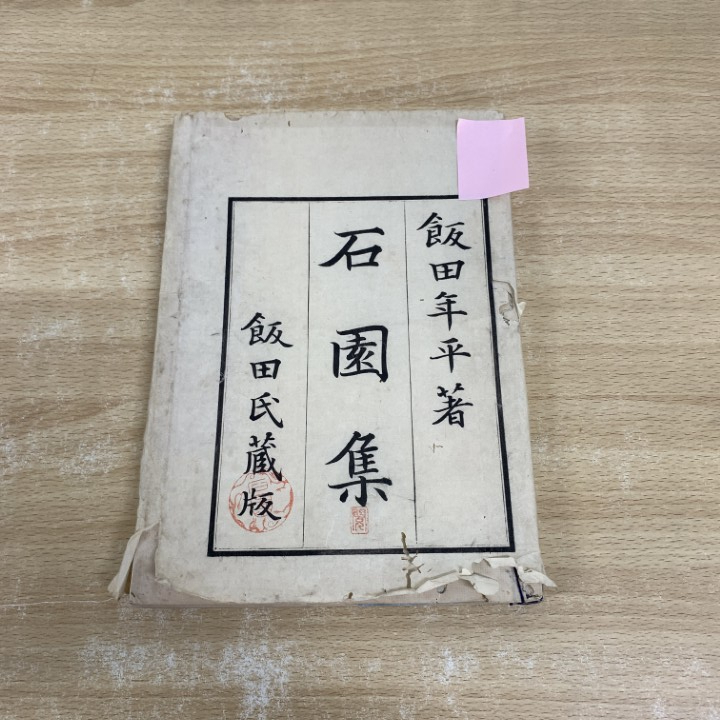 飯田年平著
石園集
飯田氏蔵版